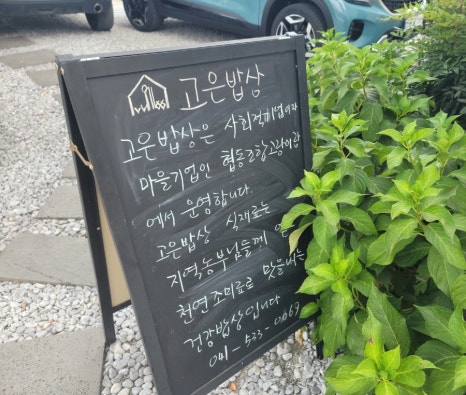 고은밥상
고은밥상은 사회적기업이자
마을기업인 협동조합고랑이랑
에서 운영합니다.
고은밥상 식재료는
지역농부님들께
천연조미료로 맛을내는
건강밥상입니다
041-533-0669